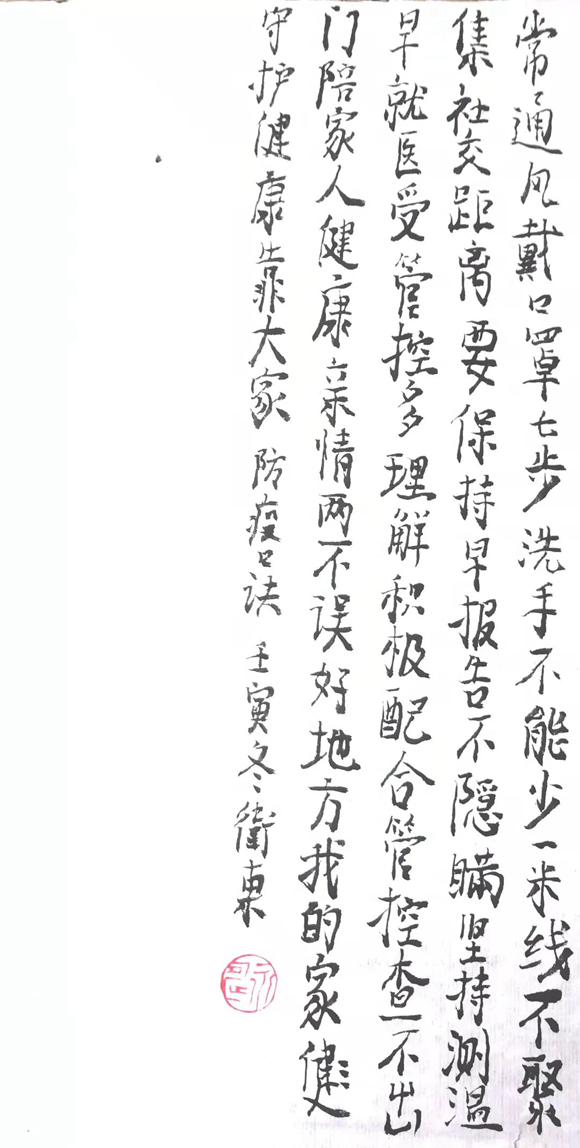 常通风戴口罩七步洗手不能少一米线不聚
集社交距离要保持早报告不隱瞒坚持测温
早就医受管控多理解积极配合管控查不出
门陪家人健康亲情两不误好地方我的家
守护健康靠大家 防疫口诀 壬寅冬衛東